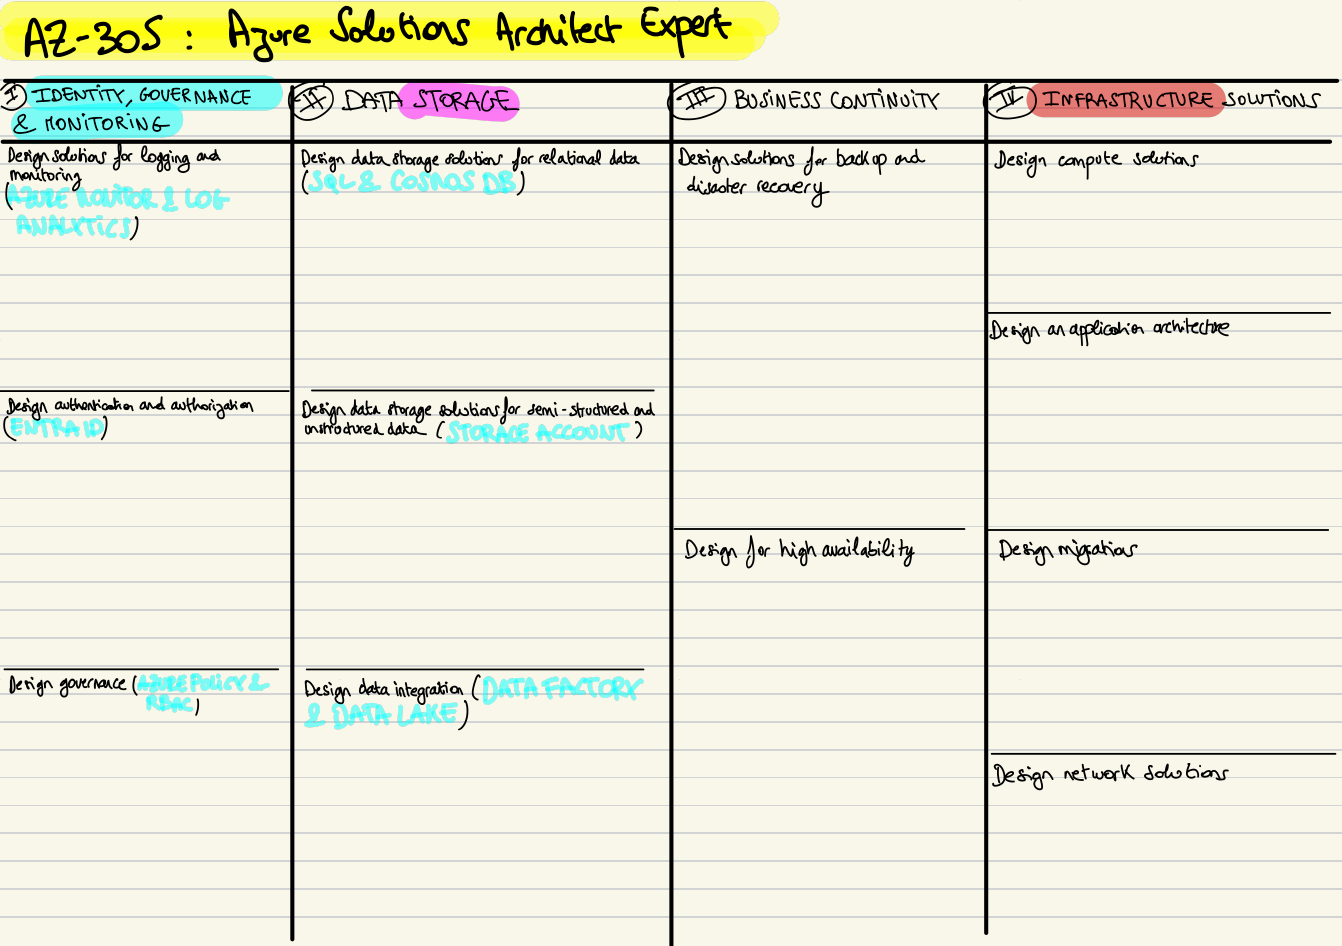 AZ-305 : Azure Solutions Architect Expert
I IDENTITY, GOVERNANCE
& MONITORING
Design solutions for logging and
monitoring
(AZURE MONITOR & LOG
ANALYTICS)
Design authentication and authorization
(ENTRA ID)
Design governance (AZURE POLICY &
RBAC)
II DATA STORAGE
Design data storage solutions for relational data
(SQL & COSMOS DB)
Design data storage solutions for semi-structured and
unstructured data (STORAGE ACCOUNT)
Design data integration (DATA FACTORY
& DATA LAKE)
III BUSINESS CONTINUITY
Design solutions for backup and
disaster recovery
Design for high availability
IV INFRASTRUCTURE SOLUTIONS
Design compute solutions
Design an application architecture
Design migrations
Design network solutions